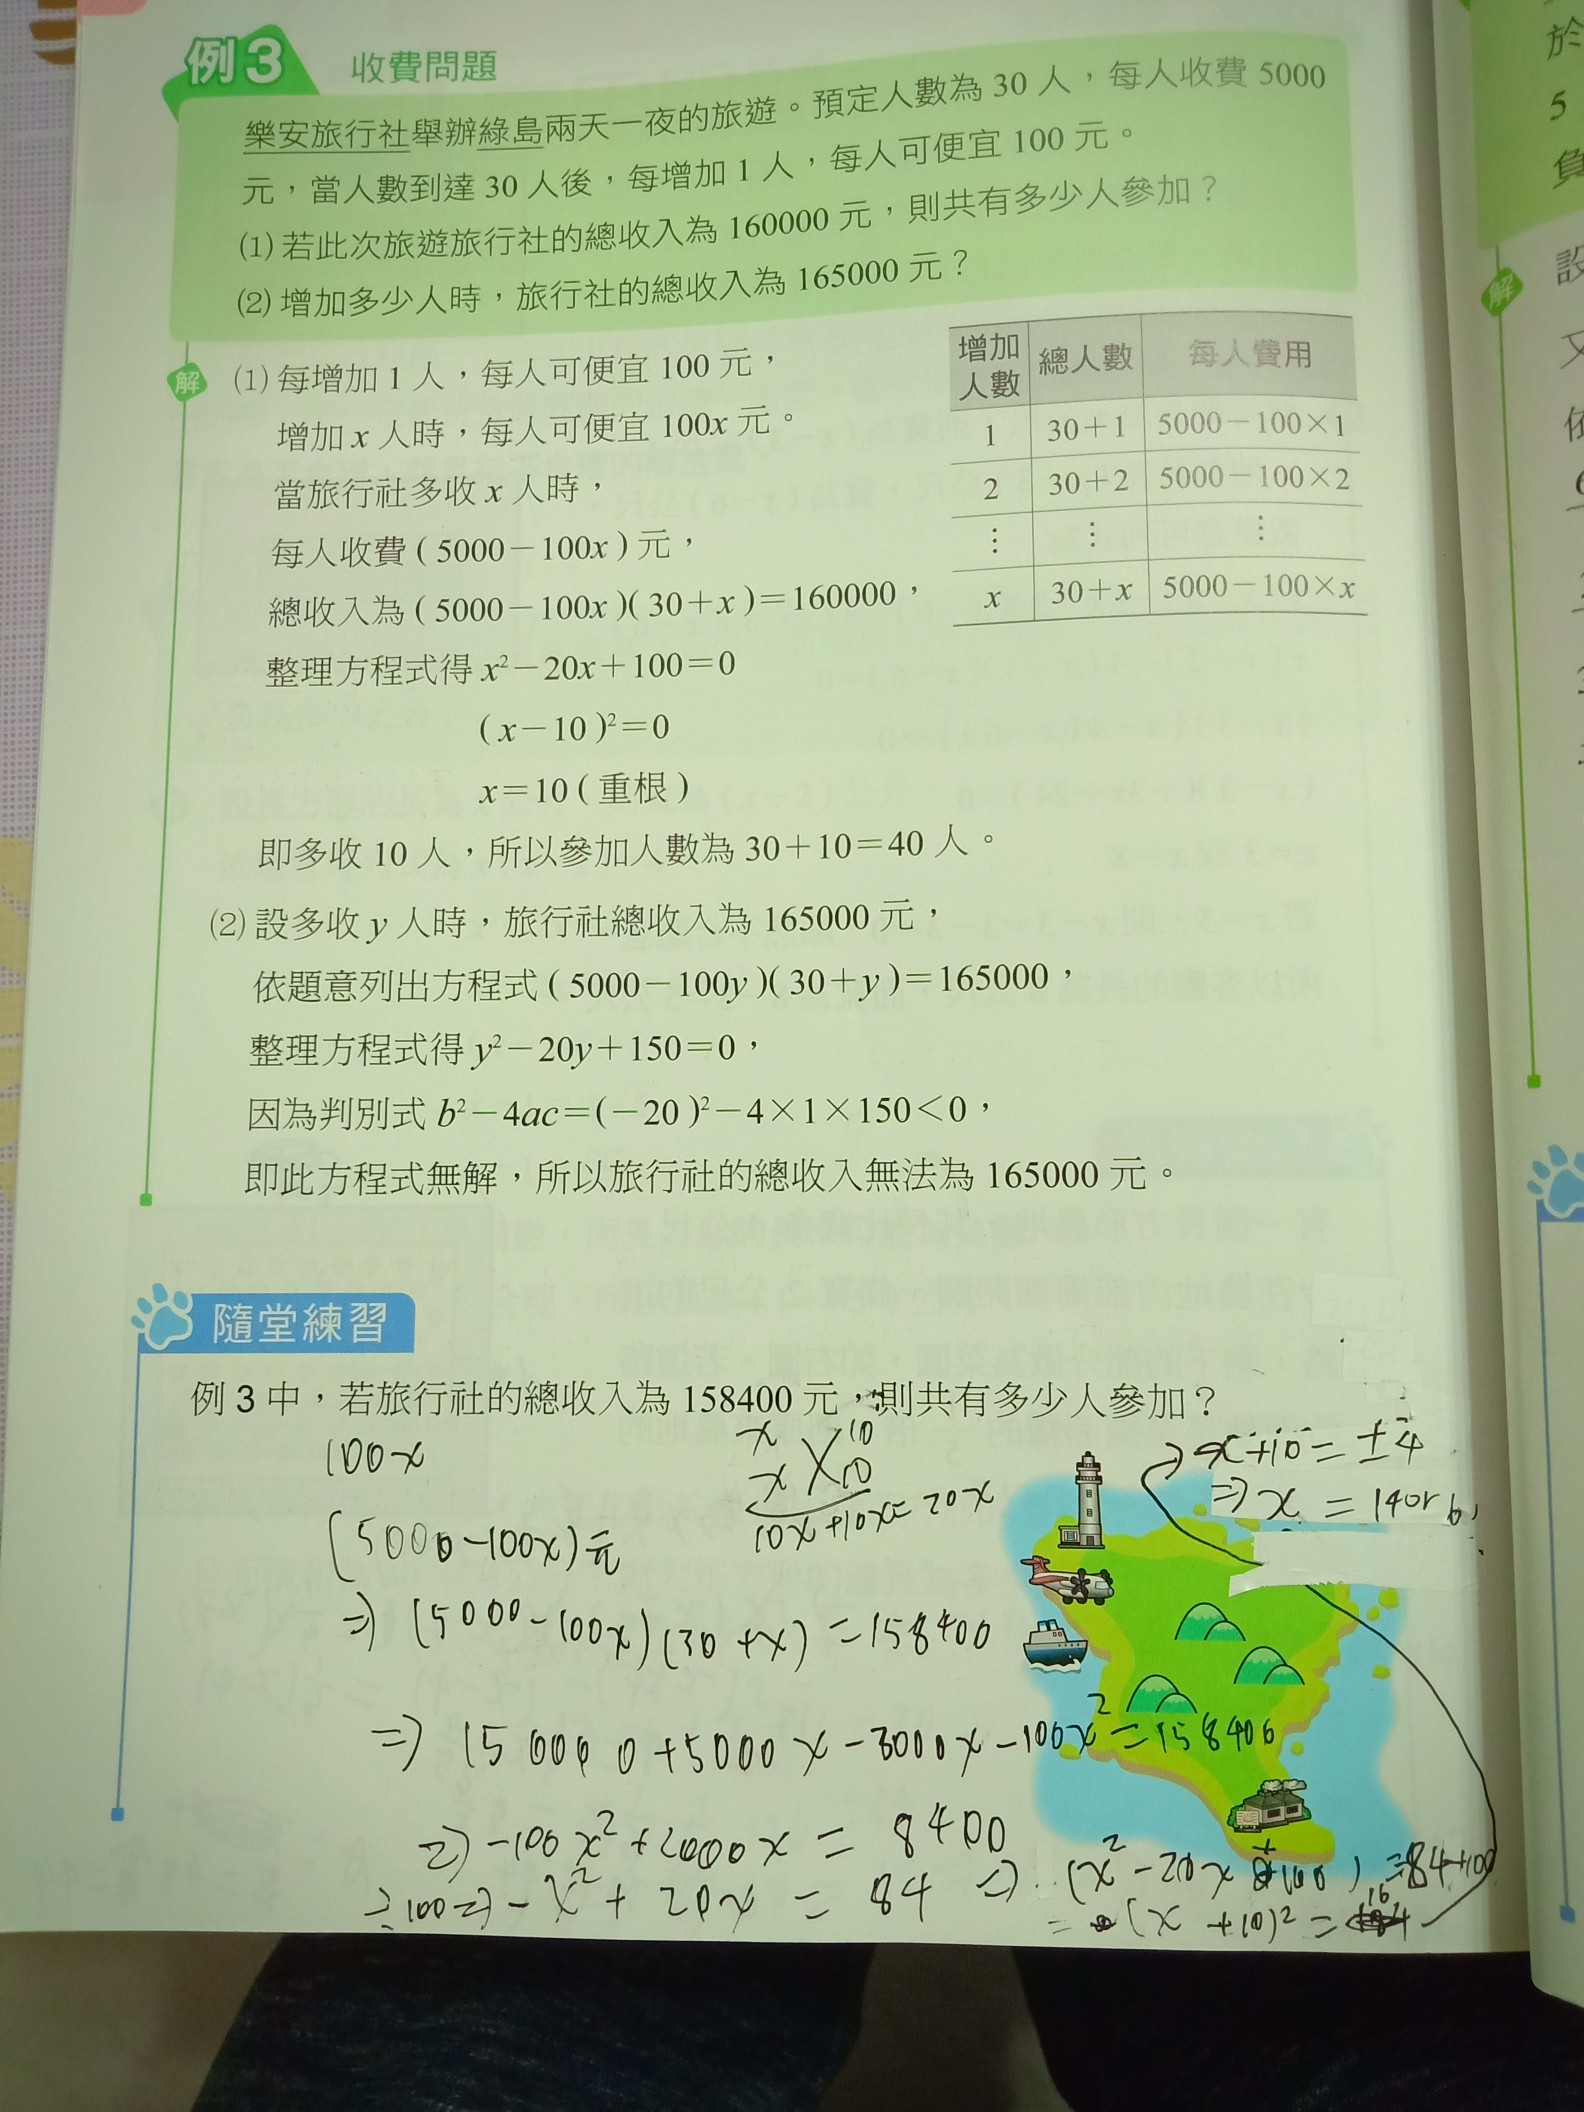 例3 收費問題
樂安旅行社舉辦綠島兩天一夜的旅遊。預定人數為 30 人，每人收費 5000
元，當人數到達 30 人後，每增加 1 人，每人可便宜 100 元。
⑴ 若此次旅遊旅行社的總收入為 160000 元，則共有多少人參加？
⑵ 增加多少人時，旅行社的總收入為 165000 元？
解 ⑴ 每增加 1 人，每人可便宜 100 元，
增加 x 人時，每人可便宜 100x 元。
當旅行社多收 x 人時，
每人收費（5000－100x）元，
總收入為（5000－100x)(30＋x）＝160000，
整理方程式得 x²－20x＋100＝0
（x－10）²＝0
x＝10（重根）
即多收 10 人，所以參加人數為 30＋10＝40 人。
增加人數 總人數 每人費用
1 30＋1 5000－100×1
2 30＋2 5000－100×2
⋮ ⋮ ⋮
x 30＋x 5000－100×x
⑵ 設多收 y 人時，旅行社總收入為 165000 元，
依題意列出方程式（5000－100y)(30＋y）＝165000，
整理方程式得 y²－20y＋150＝0，
因為判別式 b²－4ac＝(－20)²－4×1×150＜0，
即此方程式無解，所以旅行社的總收入無法為 165000 元。
隨堂練習
例 3 中，若旅行社的總收入為 158400 元，則共有多少人參加？
100x
(5000-100x)元
⇒ (5000-100x)(30+x)=158400
⇒ 150000+5000x-3000x-100x²=158400
⇒ -100x²+2000x=8400
÷100⇒ -x²+20x=84 ⇒ (x²-20x+100)=84+100
=(x+10)²=16
x 10
x 10
10x+10x=20x
→ x+10=±4
⇒ x=14or6
於
5
負
解 設
又
依